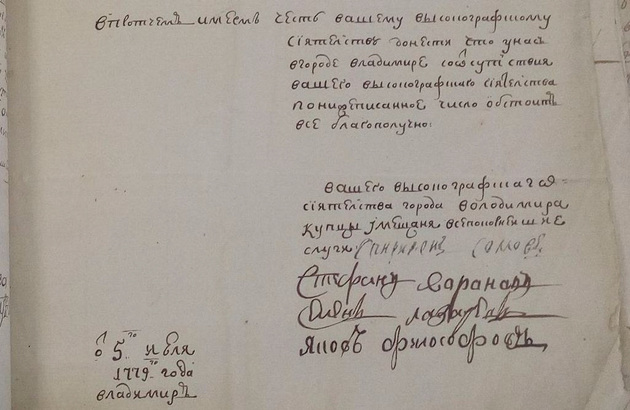 впротчемъ имеемъ честь вашему высокографскому
сиятелству донести что унасъ
вгороде владимире со отсутствия
вашего высокографскаго сиятелства
по нижеписанное число обстоитъ
все благополучно:
вашего высокографскаго
сиятелства города володимира
купцы имещаня всепокорнейшие
слуги
Стефанъ
Яковъ Философовъ
5го июля
1779го года
владимиръ